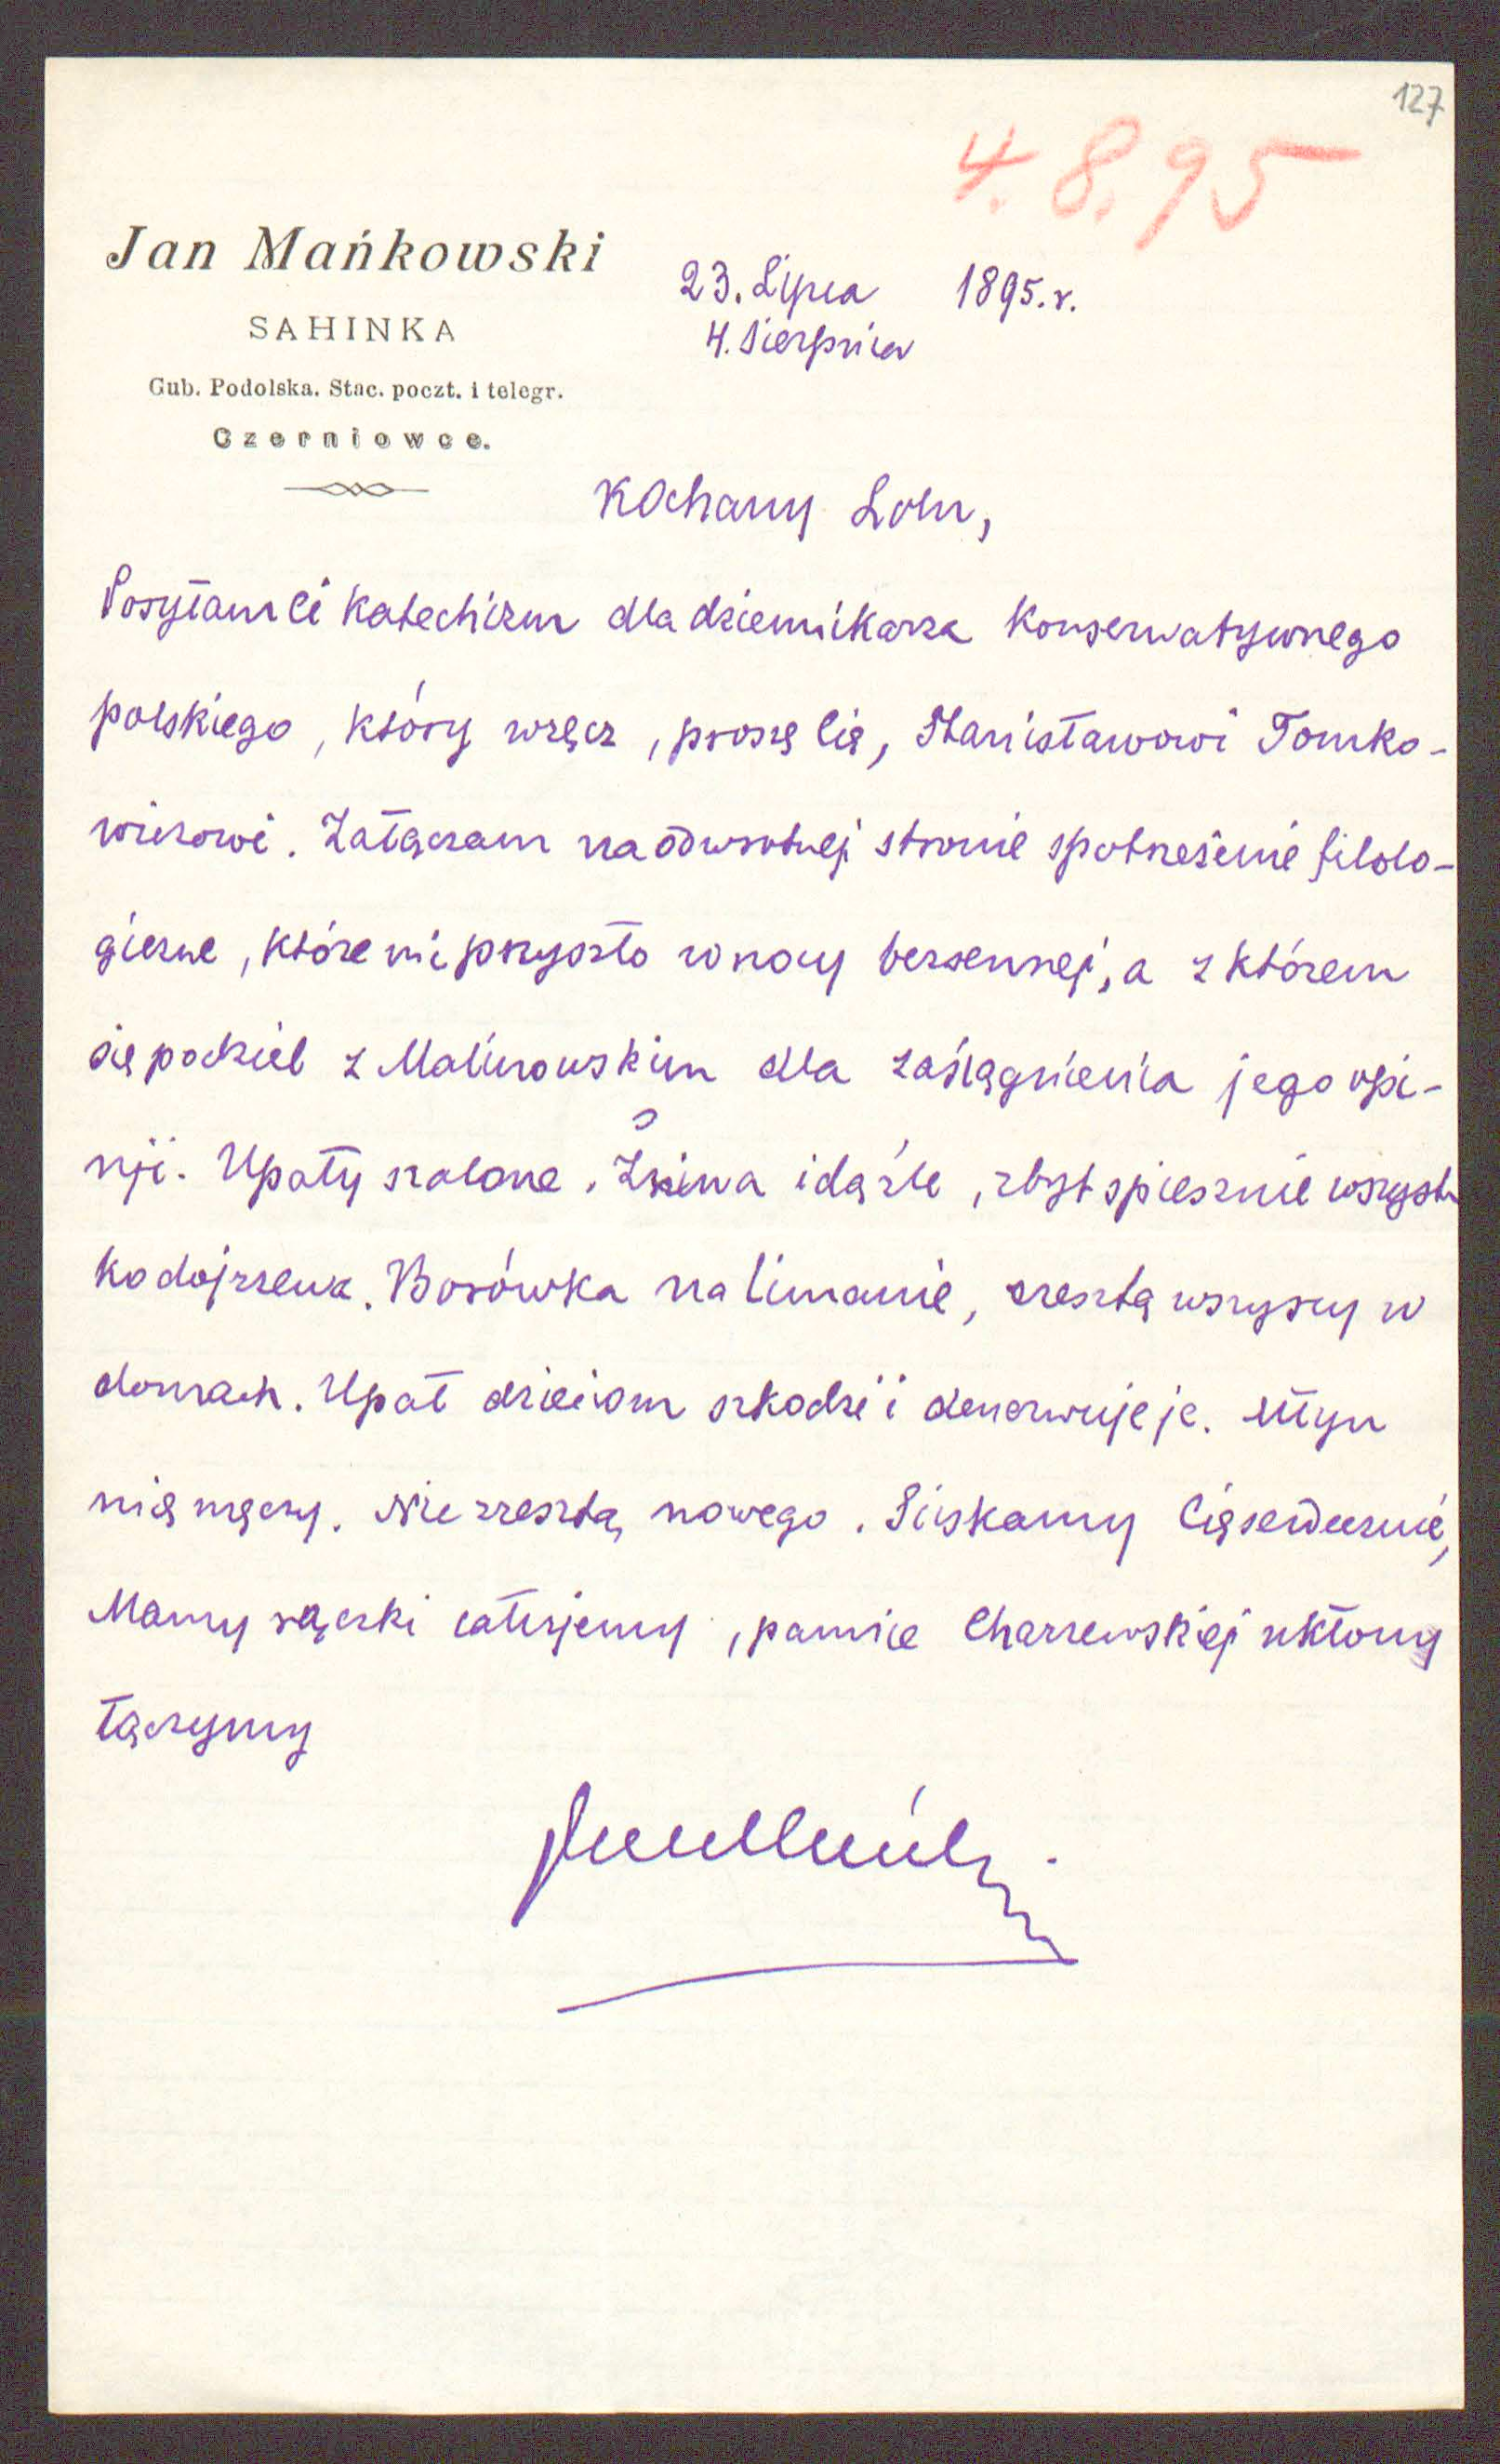 127
4.8.95
Jan Mańkowski
SAHINKA
Gub. Podolska. Stac. poczt. i telegr.
Czerniowce.
23. Lipca 1895.r.
4. Sierpnia
Kochany Lolu,
Posyłam Ci Katechizm dla dziennikarza Konserwatywnego
polskiego, który wręcz, proszę Cię, Stanisławowi Tomko-
wiczowi. Załączam na odwrotnej stronie spotrzeżenie filolo-
giczne, które mi przyszło w nocy bezsennej, a z którem
się podziel z Malinowskim dla zasiągnienia jego opi-
nji. Upały szalone. Żniwa idą źle, zbyt spiesznie wszyst-
ko dojrzewa. Borówka na limanie, zresztą wszyscy w
domach. Upał dzieciom szkodzi i denerwuje je. Młyn
mię męczy. Nic zresztą nowego. Ściskamy Cię serdecznie,
Mamy rączki całujemy, pannie Charzewskiej ukłony
łączymy